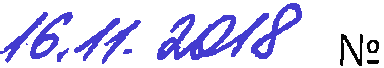 16.11.2018 №